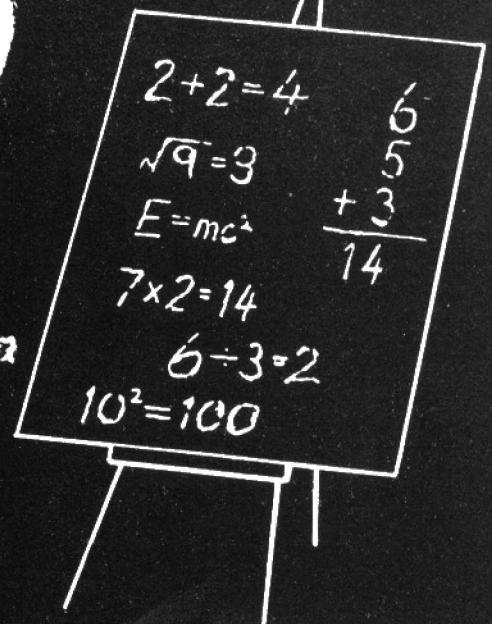 2+2=4
√9=3
E=mc²
7×2=14
6÷3=2
10²=100
6
5
+3
14